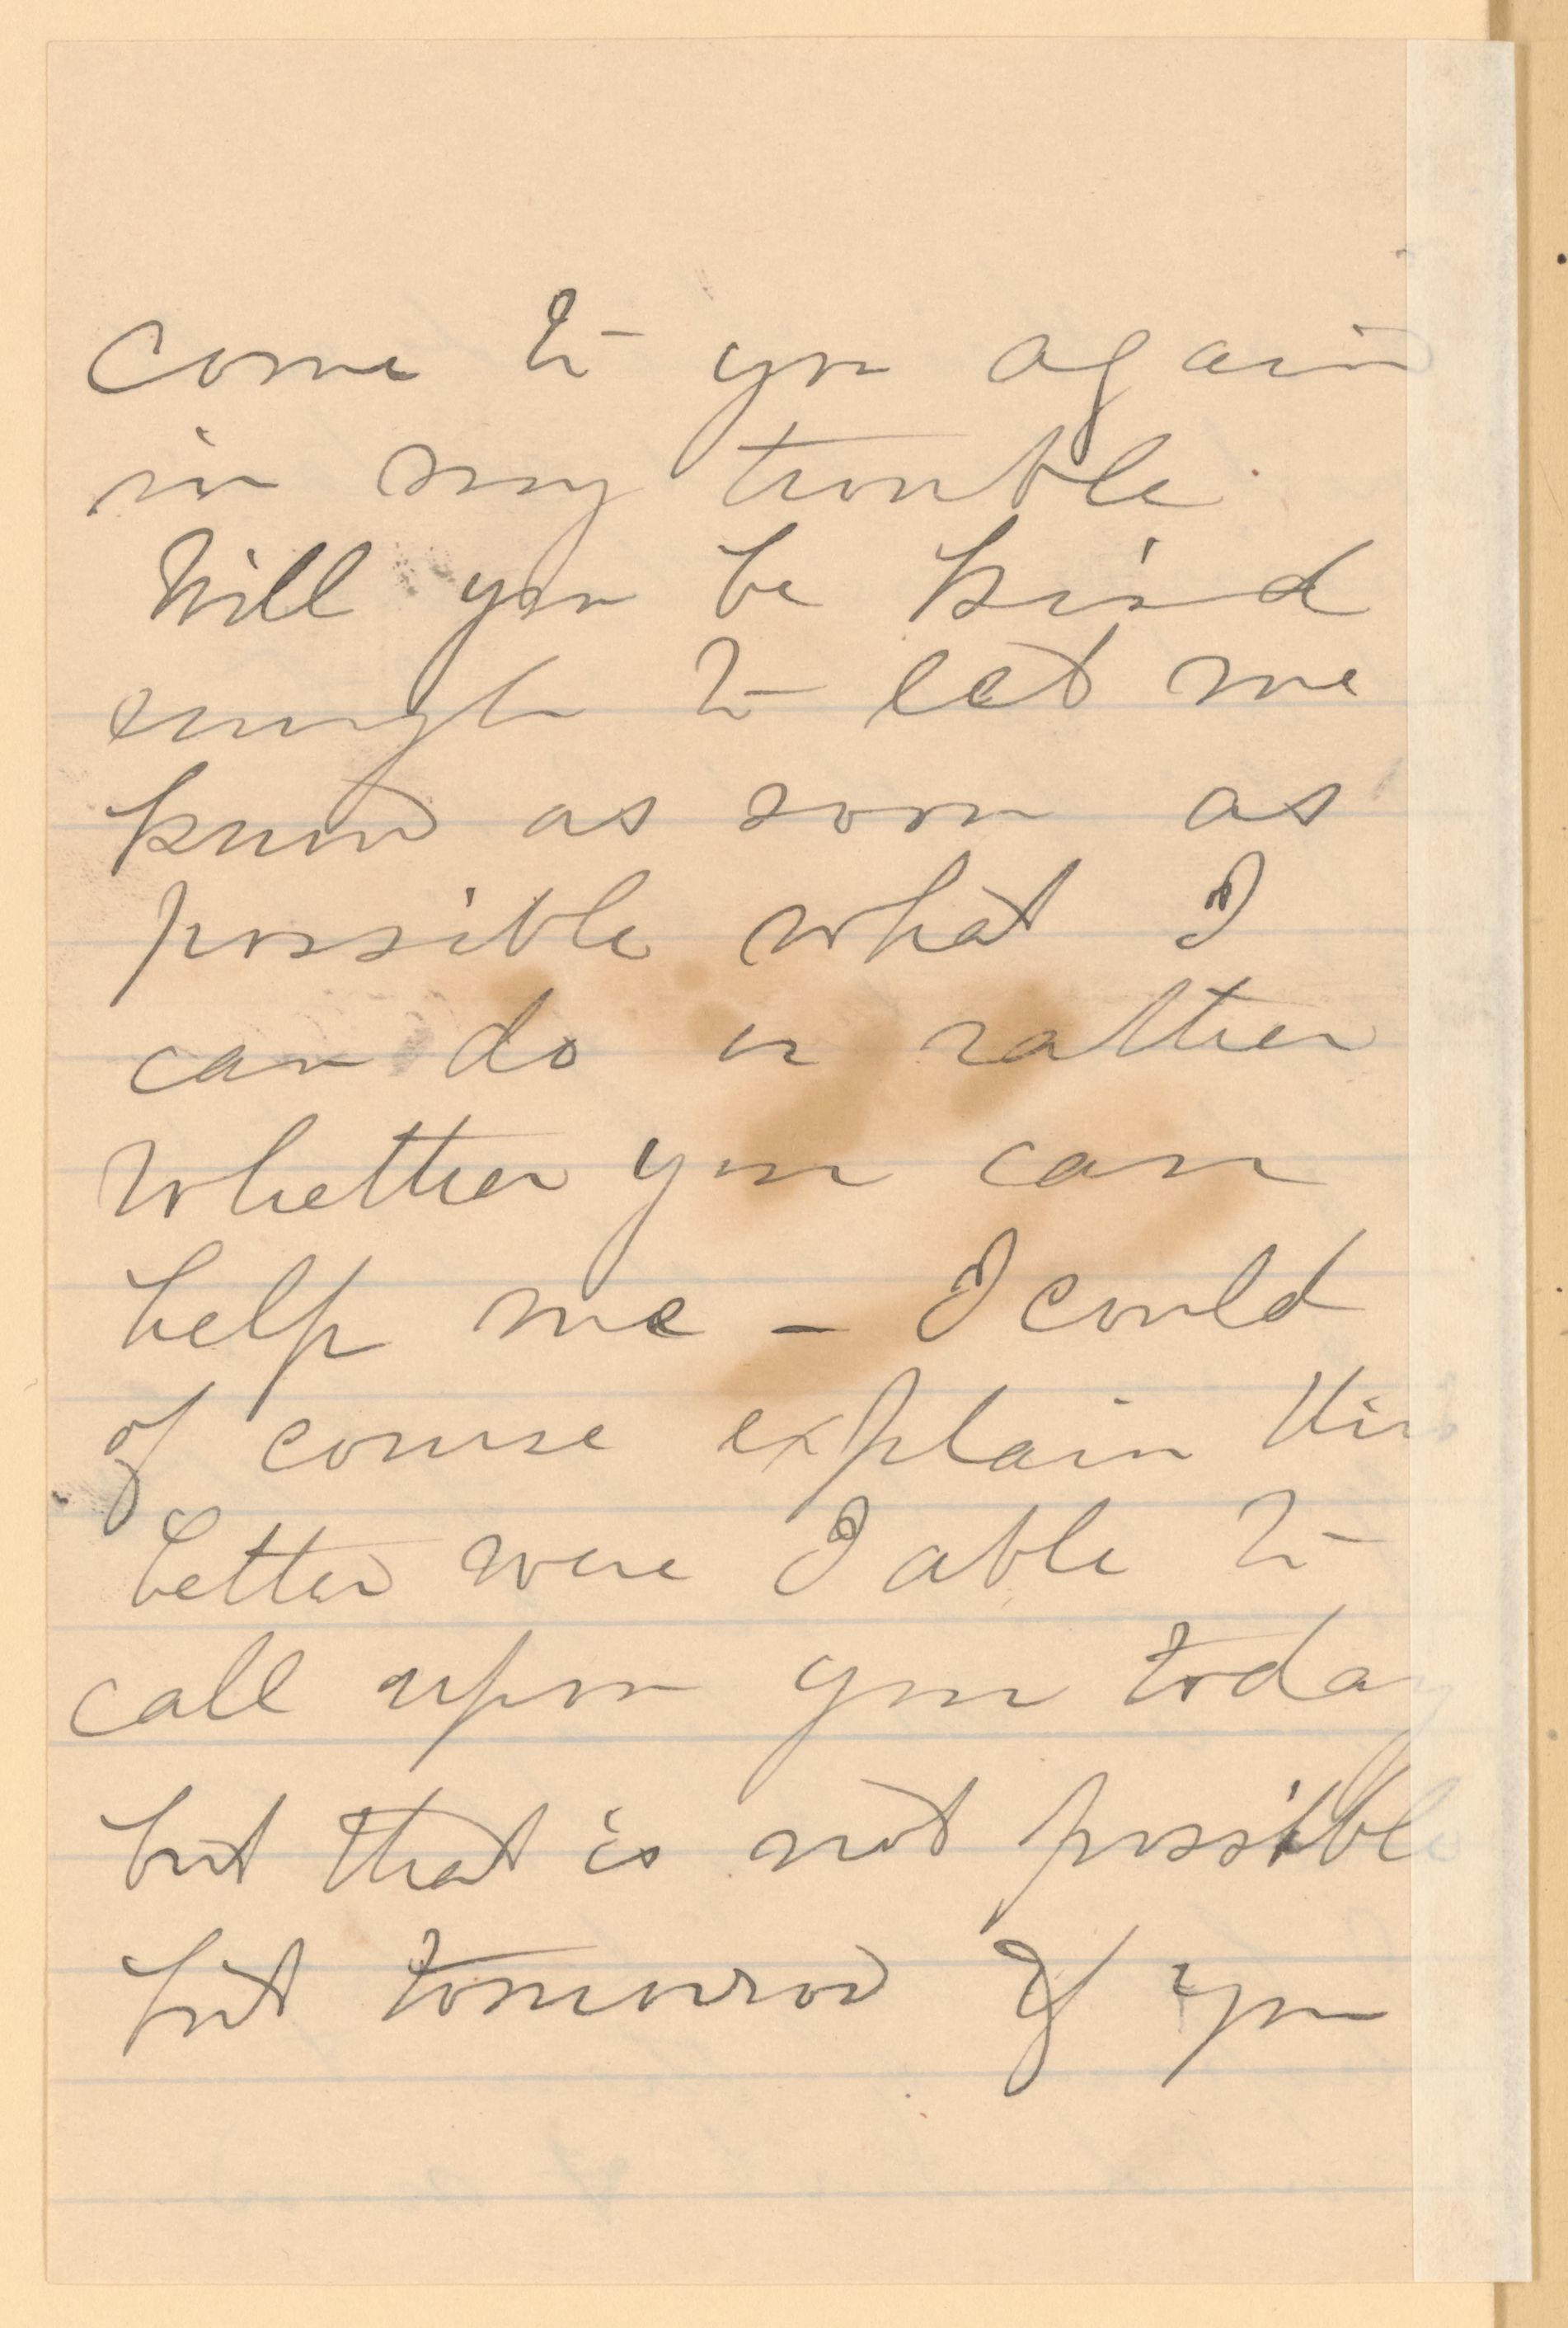 come to you again
in my trouble.
Will you be kind
enough to let me
know as soon as
possible what I
can do or rather
whether you can
help me – I could
of course explain this
better were I able to
call upon you today
but that is not possible
but tomorrow If you